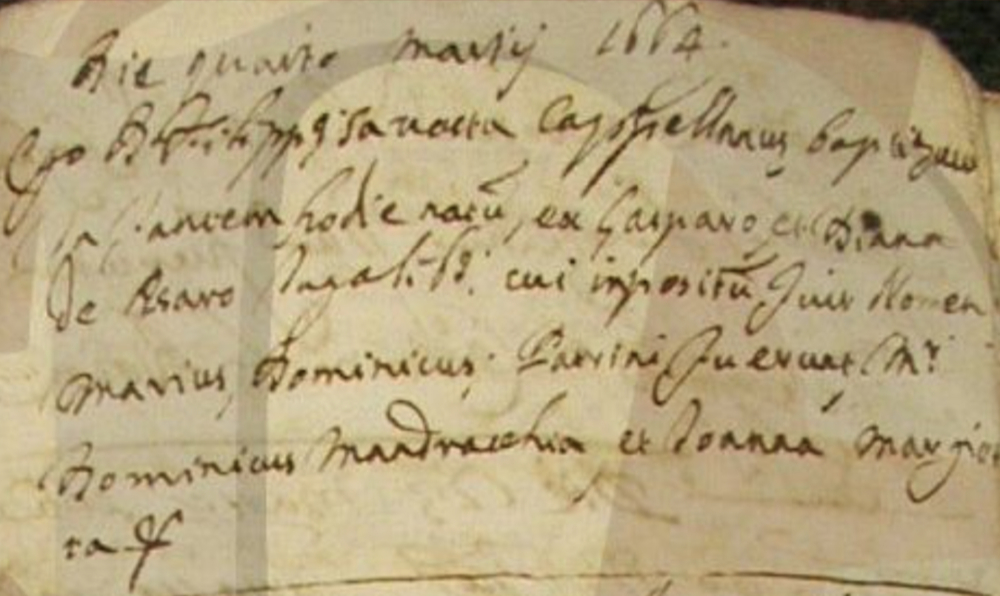 Die quarto martij 1664.
Ego D. Philippus Savatta Cappellanus baptizavi
Infantem hodie natū, ex Gasparo, et Diana
de Pesaro Iugalibȝ: cui inpositū fuit Nomen
Marius, Dominicus; Patrini fuerunt Mr
Dominicus Mandracchia et Ioanna Margiot
ta